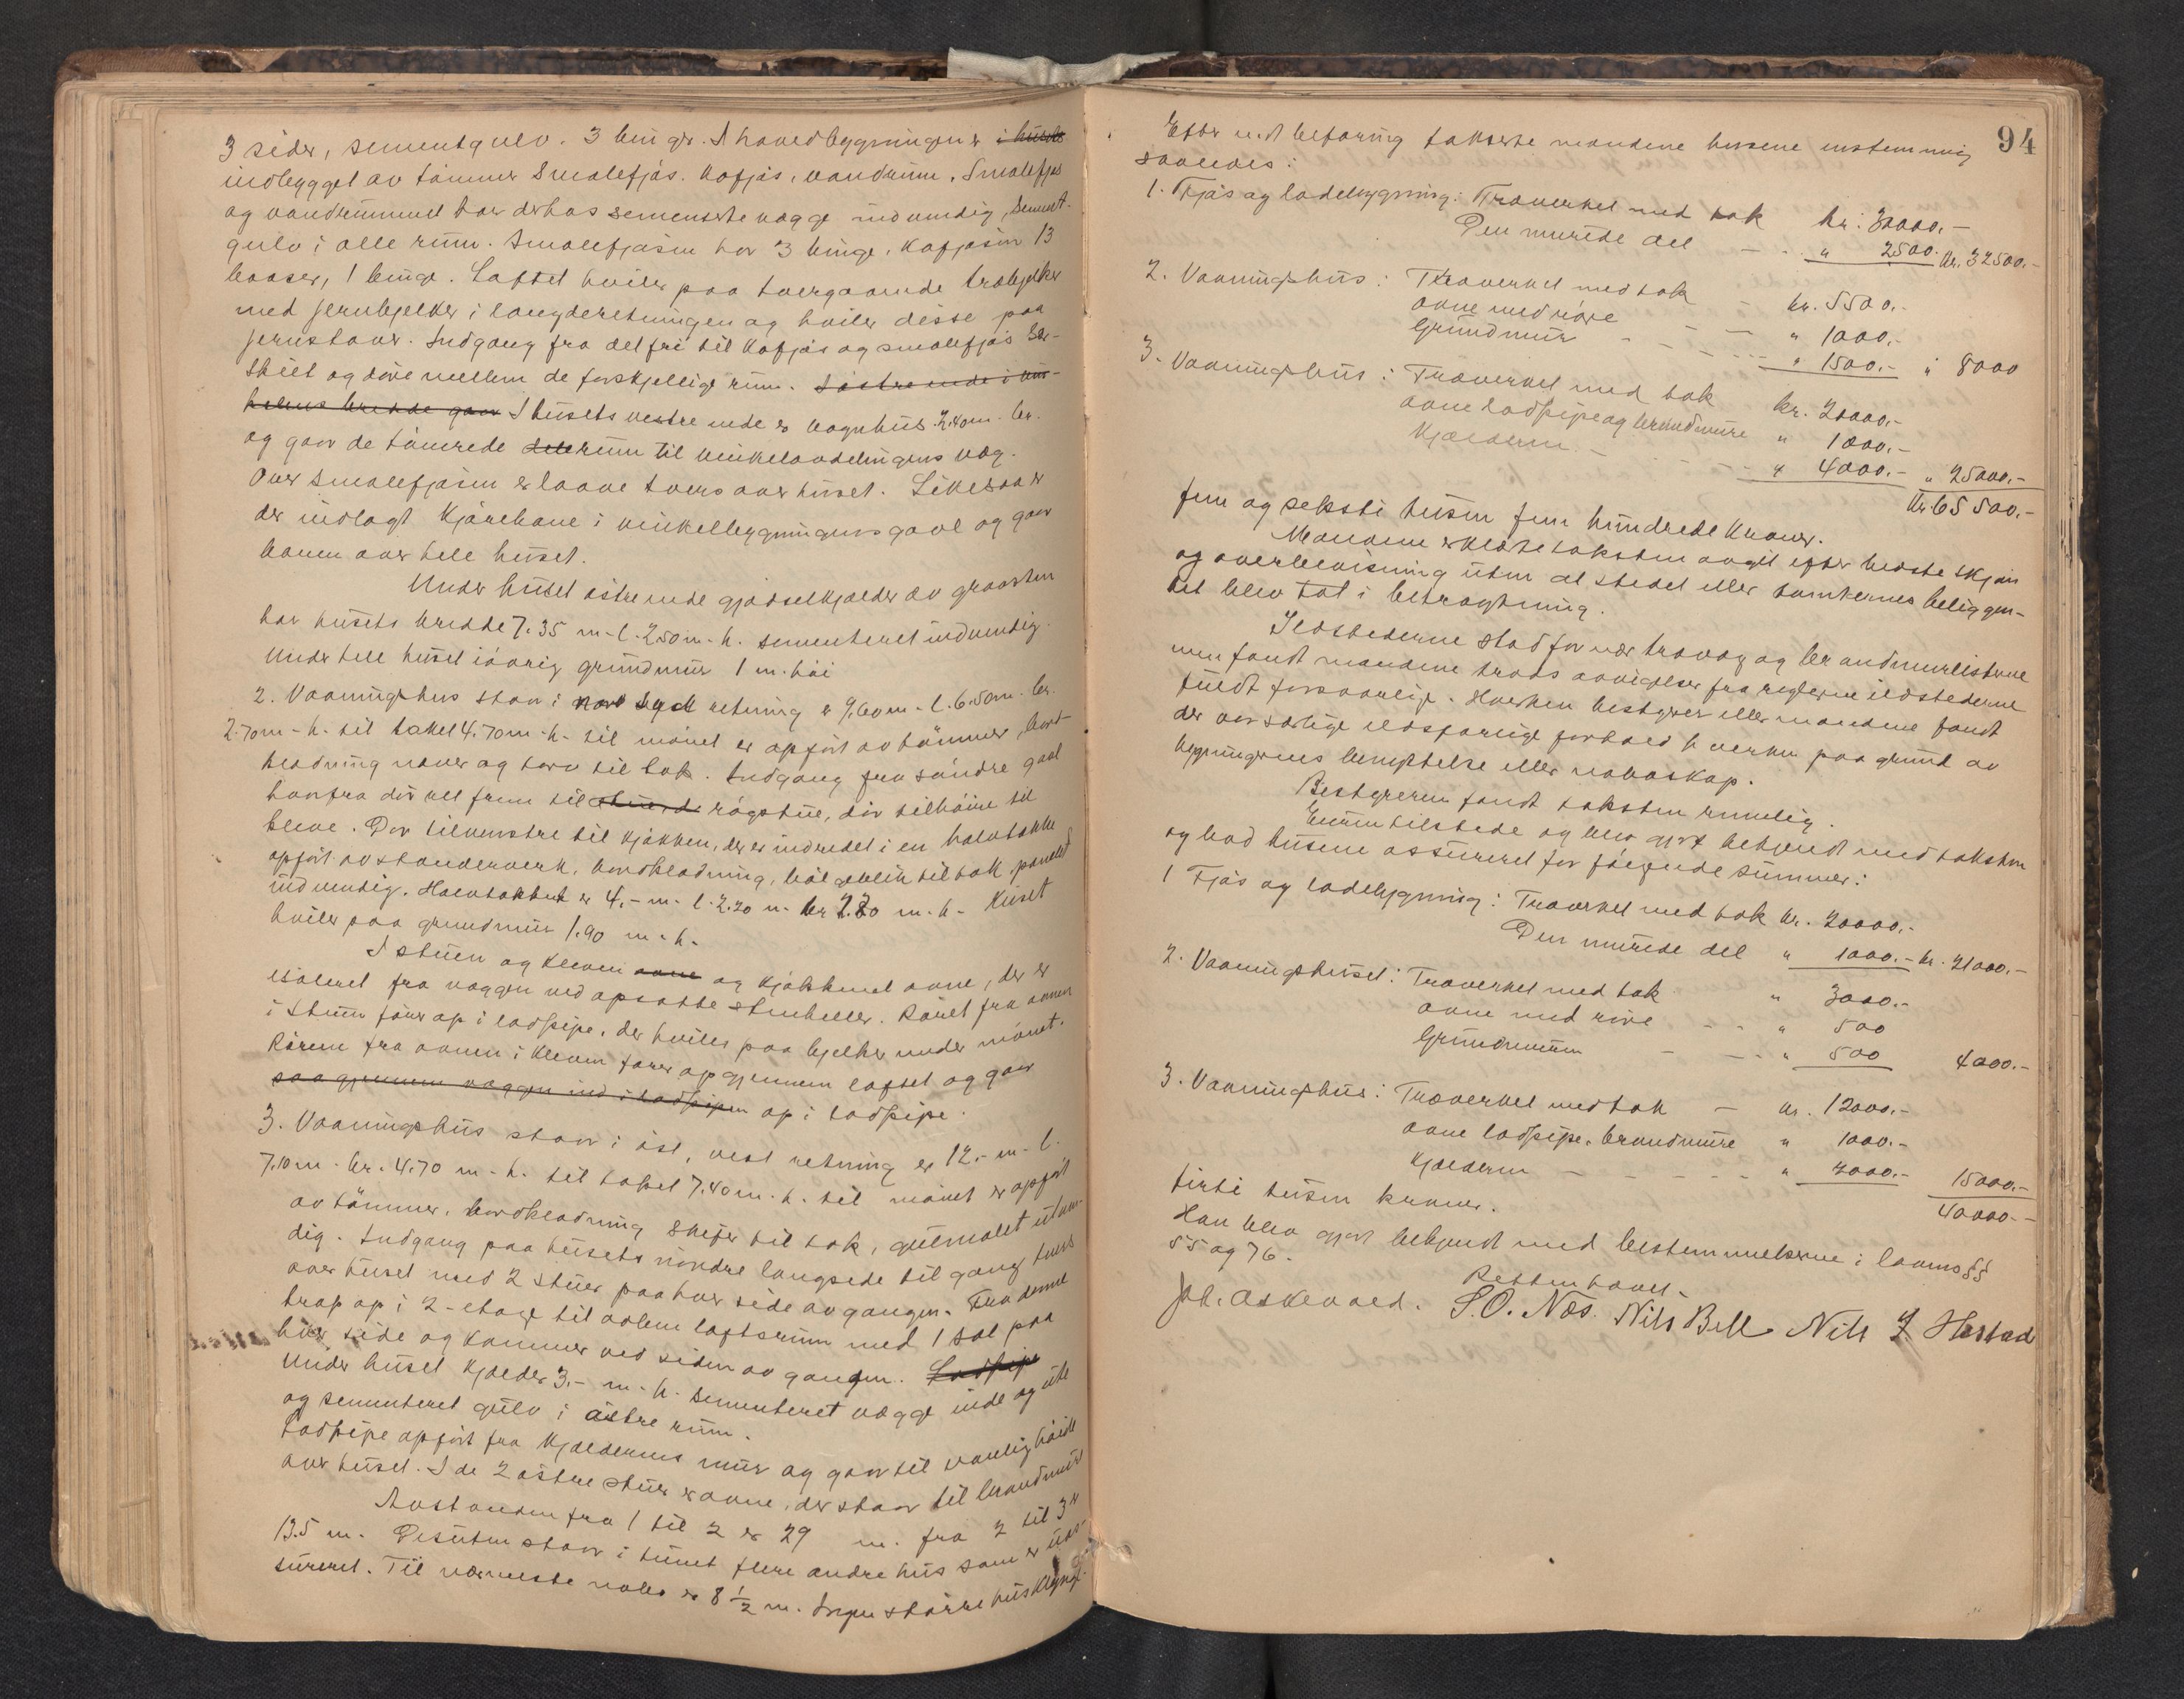 3 sider, sementgulv. 3 binger. I hovedbygningen er i huset
indbygget av tømmer Smalefjøs. Kofjøs, vandrum. Smalefjøs
og vandrummet har derhos sementerte vægge indvendig, sement-
gulv i alle rum. Smalefjøsen har 3 binge. Kofjøsen 13
baaser, 1 binge. Loftet hviler paa tvergaaende træbjelker
med jernbjelker i længderetningen og hviler disse paa
jernstaver. Indgang fra det fri til kofjøs og smalefjøs sær-
skilt og døre mellem de forskjellige rum.
I husets vestre ende er vognhus 2.40 m. br.
og gaar de tømrede rum til vinkelavdelingens væg.
Over smalefjøsen er laave tvers over huset. Likesaa er
der indlagt kjørebane i vinkelbygningens gavl og gaar
banen over hele huset.
Under huset østre ende gjødselkjælder av graasten
har husets bredde 7.35 m. l. 2.50 m. h. sementeret indvendig.
Under hele huset iøvrig grundmur 1 m. høi
2. Vaaningshus staar i nord syd retning er 9,60 m. l. 6.50 m. br.
2.70 m. h. til taket 4.70 m. h. til mønet er opført av tømmer, bord-
klædning næver og torv til tak. Indgang fra søndre gavl
herfra dør ret frem til røgstue, dør tilhøire til
kleve. Dør tilvenstre til kjøkken, der er indredet i en halvtække
opført av stenderverk, bordklædning, bølgeblik til tak, panelet
indvendig. Halvtækket er 4,- m. l. 2.20 m. br 2.20 m. h. Huset
hviler paa grundmur 1.90 m. h.
I stuen og kleven ovne og kjøkkenet ovne, der er
isoleret fra væggen ved opsatte stenheller. Røret fra ovnen
i stuen fører op i ladpipe, der hviler paa bjelker under mønet.
Rørene fra ovnen i kleven fører op gjennem loftet og gaar
saa gjennem væggen ind i ladpipen op i ladpipe.
3. Vaaningshus staar i øst, vest retning er 12,- m. l.
7,10 m. br. 4,70 m. h. til taket 7,40 m. h. til mønet er opført
av tømmer, bordklædning skifer til tak, gulmalet utven-
dig. Indgang paa husets nordre langside til gang tvers
over huset med 2 stuer paa hver side av gangen. Fra denne
trap op i 2-etage til aapen loftsrum med 1 sal paa
hver side og kammer ved siden av gangen. Ladpipe
Under huset kjælder 3,- m. h. sementeret vægge inde og ute
og sementeret gulv i østre rum.
Ladpipe opført fra kjælderens mur og gaar til vanlig høide
over huset. I de 2 østre stuer er ovne, der staar til brandmur
Avstanden fra 1 til 2 er 29 m. fra 2 til 3 er
13.5 m. Desuten staar i tunet flere andre hus som er uas-
sureret. Til nærmeste nabo er 8 1/2 m. Ingen større husklynge
94
Efter endt befaring takserte mændene husene enstemmig
saaledes:
1. Fjøs og ladebygning: Træverket med tak kr. 30000.-
Den murede del - - " 2500. Kr. 32500.-
2. Vaaningshus: Træverket med tak - kr. 5500.-
ovne med røre - - " 1000.-
Grundmur - - - " 1500.- " 8000
3. Vaaningshus: Træverket med tak kr. 20000.-
ovne ladpipe og brandmure " 1000.-
Kjælderen - - - " 4000.- " 25000.-
Kr. 65500.-
fem og seksti tusen fem hundrede kroner.
Mændene erklærte taksten avgit efter bedste skjøn
og overbevisning uten at stedet eller tomternes beliggen-
het blev tat i betragtning.
Ildstederne stod for nær trævæg og brandmurlisterne
men fandt mændene trods avvigelser fra reglerne ildstederne
fuldt forsvarlige. Hverken bestyrer eller mændene fandt
der var særlige ildsfarlige forhold hverken paa grund av
bygningernes benyttelse eller naboskap.
Bestyreren fandt taksten rimelig.
Eieren tilstede og blev gjort bekjendt med taksten
og bad husene assureret for følgende summer:
1 Fjøs og ladebygning: Træverket med tak kr. 20000.-
Den murede del " 1000.- kr. 21000.-
2. Vaaningshuset: Træverket med tak " 3000.-
ovne med røre - - " 500
Grundmuren - - - " 500 4000.-
3. Vaaningshus: Træverket med tak - kr. 12000.-
ovne ladpipe, brandmure " 1000.-
Kjælderen - - - - " 2000.- 15000.-
40000.-
firti tusen kroner.
Han blev gjort bekjendt med bestemmelserne i lovens §§
55 og 76.
Retten hævet.
Joh. Askevold. S. O. Nos. Nils Bell Nils J Hestad